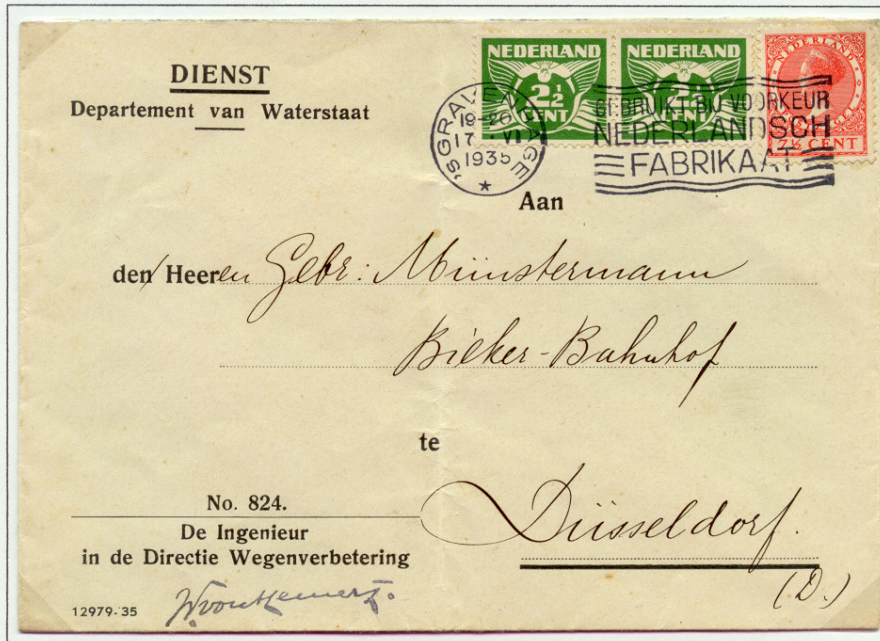 DIENST
Departement van Waterstaat
NEDERLAND
2½
CENT
NEDERLAND
2½
CENT
NEDERLAND
7½ CENT
'S GRAVENHAGE
19-20
17 VI
1935
GEBRUIKT BIJ VOORKEUR
NEDERLANDSCH
FABRIKAAT
Aan
den Heeren Gebr: Münstermann
Bilker-Bahnhof
te
Düsseldorf.
(D.)
No. 824.
De Ingenieur
in de Directie Wegenverbetering
12979-'35